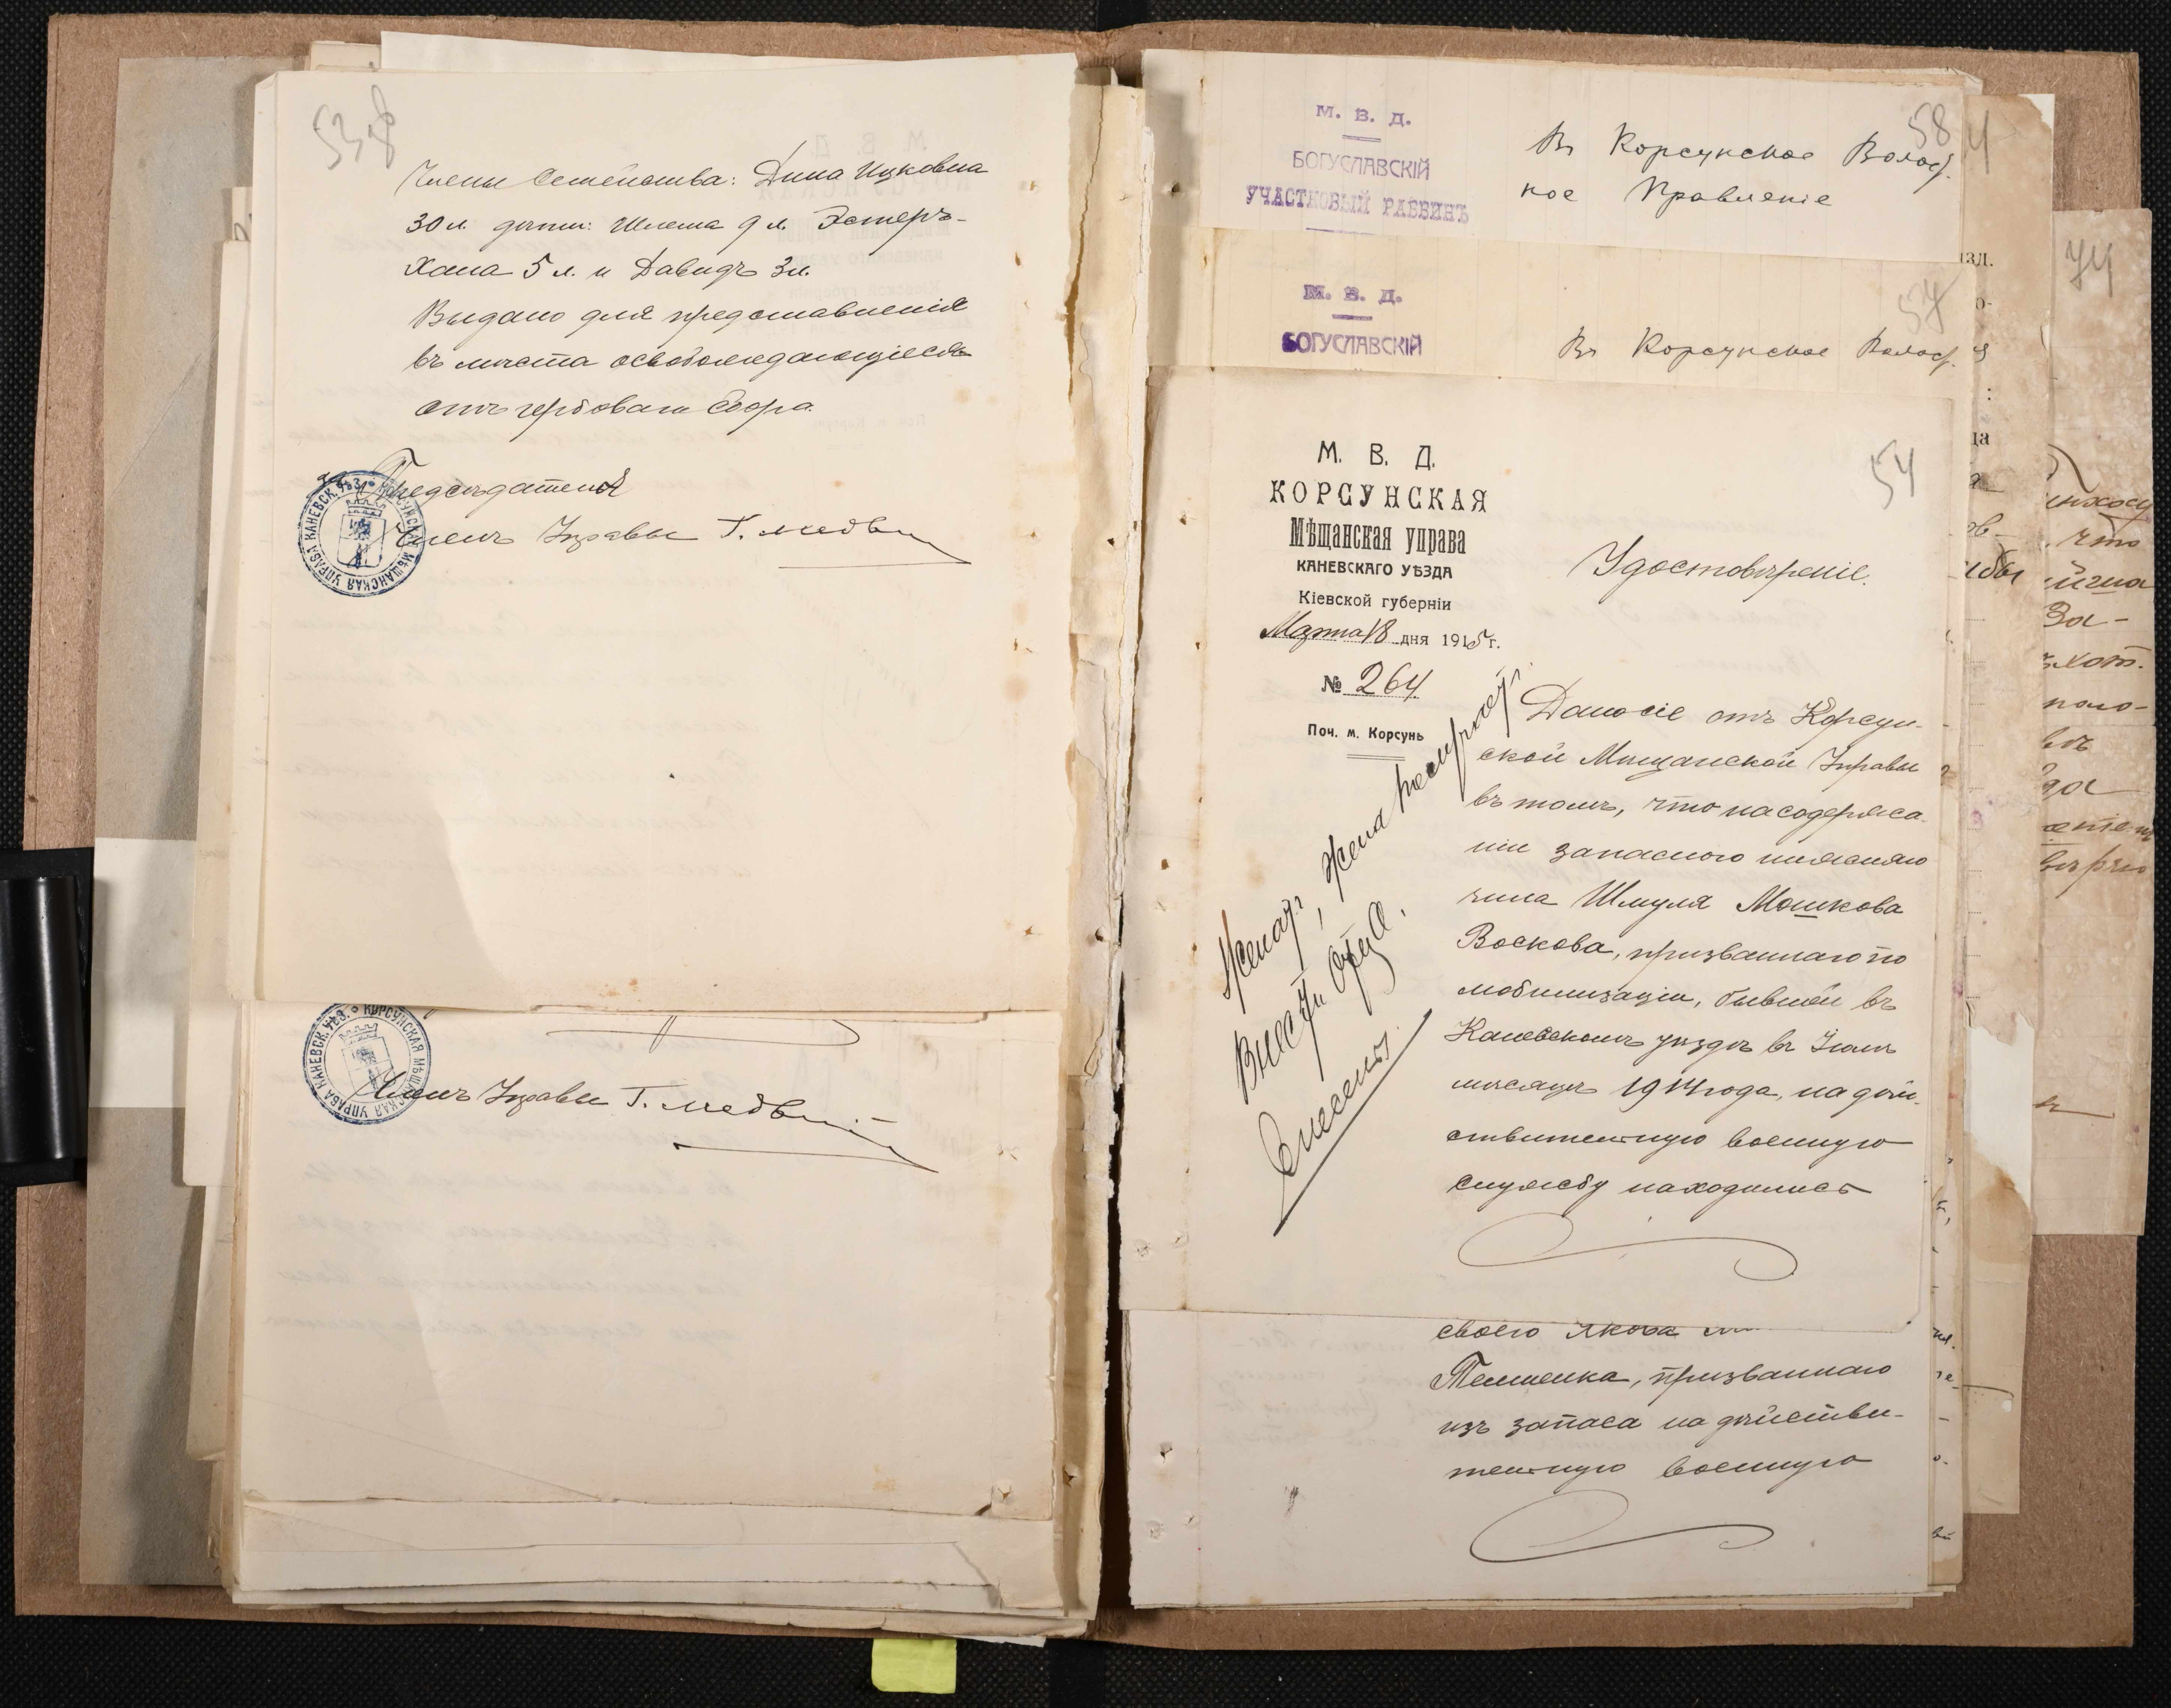 53 об
Члены семейства: Дина Ицковна
30 л. дѣти: Шлема 9 л. Эстеръ-
Хана 5 л. и Давидъ 3 л.
Выдано для представленія
въ мѣста освобождающіеся
отъ гербоваго сбора.
Предсѣдатель
Членъ Управы Г.
КОРСУНСКАЯ МѢЩАНСКАЯ УПРАВА КАНЕВСК. УѢЗ.
Членъ Управы Г.
КОРСУНСКАЯ МѢЩАНСКАЯ УПРАВА КАНЕВСК. УѢЗ.
58
М. В. Д.
БОГУСЛАВСКІЙ
УЧАСТКОВЫЙ РАВВИНЪ
Въ Корсунское Волост.
ное Правленіе
М. В. Д.
БОГУСЛАВСКІЙ
Въ Корсунское Волост.
54
М. В. Д.
КОРСУНСКАЯ
Мѣщанская управа
КАНЕВСКАГО УѢЗДА
Кіевской губерніи
Марта 18 дня 1915 г.
№ 264
Поч. м. Корсунь
Удостовѣреніе.
Дано сіе отъ Корсун-
ской Мѣщанской Управы
въ томъ, что на содержа-
ніи запасного нижняго
чина Шмуля Мошкова
Воскова, призваннаго по
мобилизаціи, бывшей въ
Каневскомъ уѣздѣ въ Іюлѣ
мѣсяцѣ 1914 года, на дѣй-
ствительную военную
службу находились
Женат, жена
Внести отца.
Внесены.
своего Якова
призваннаго
изъ запаса на дѣйстви-
тельную военную
74